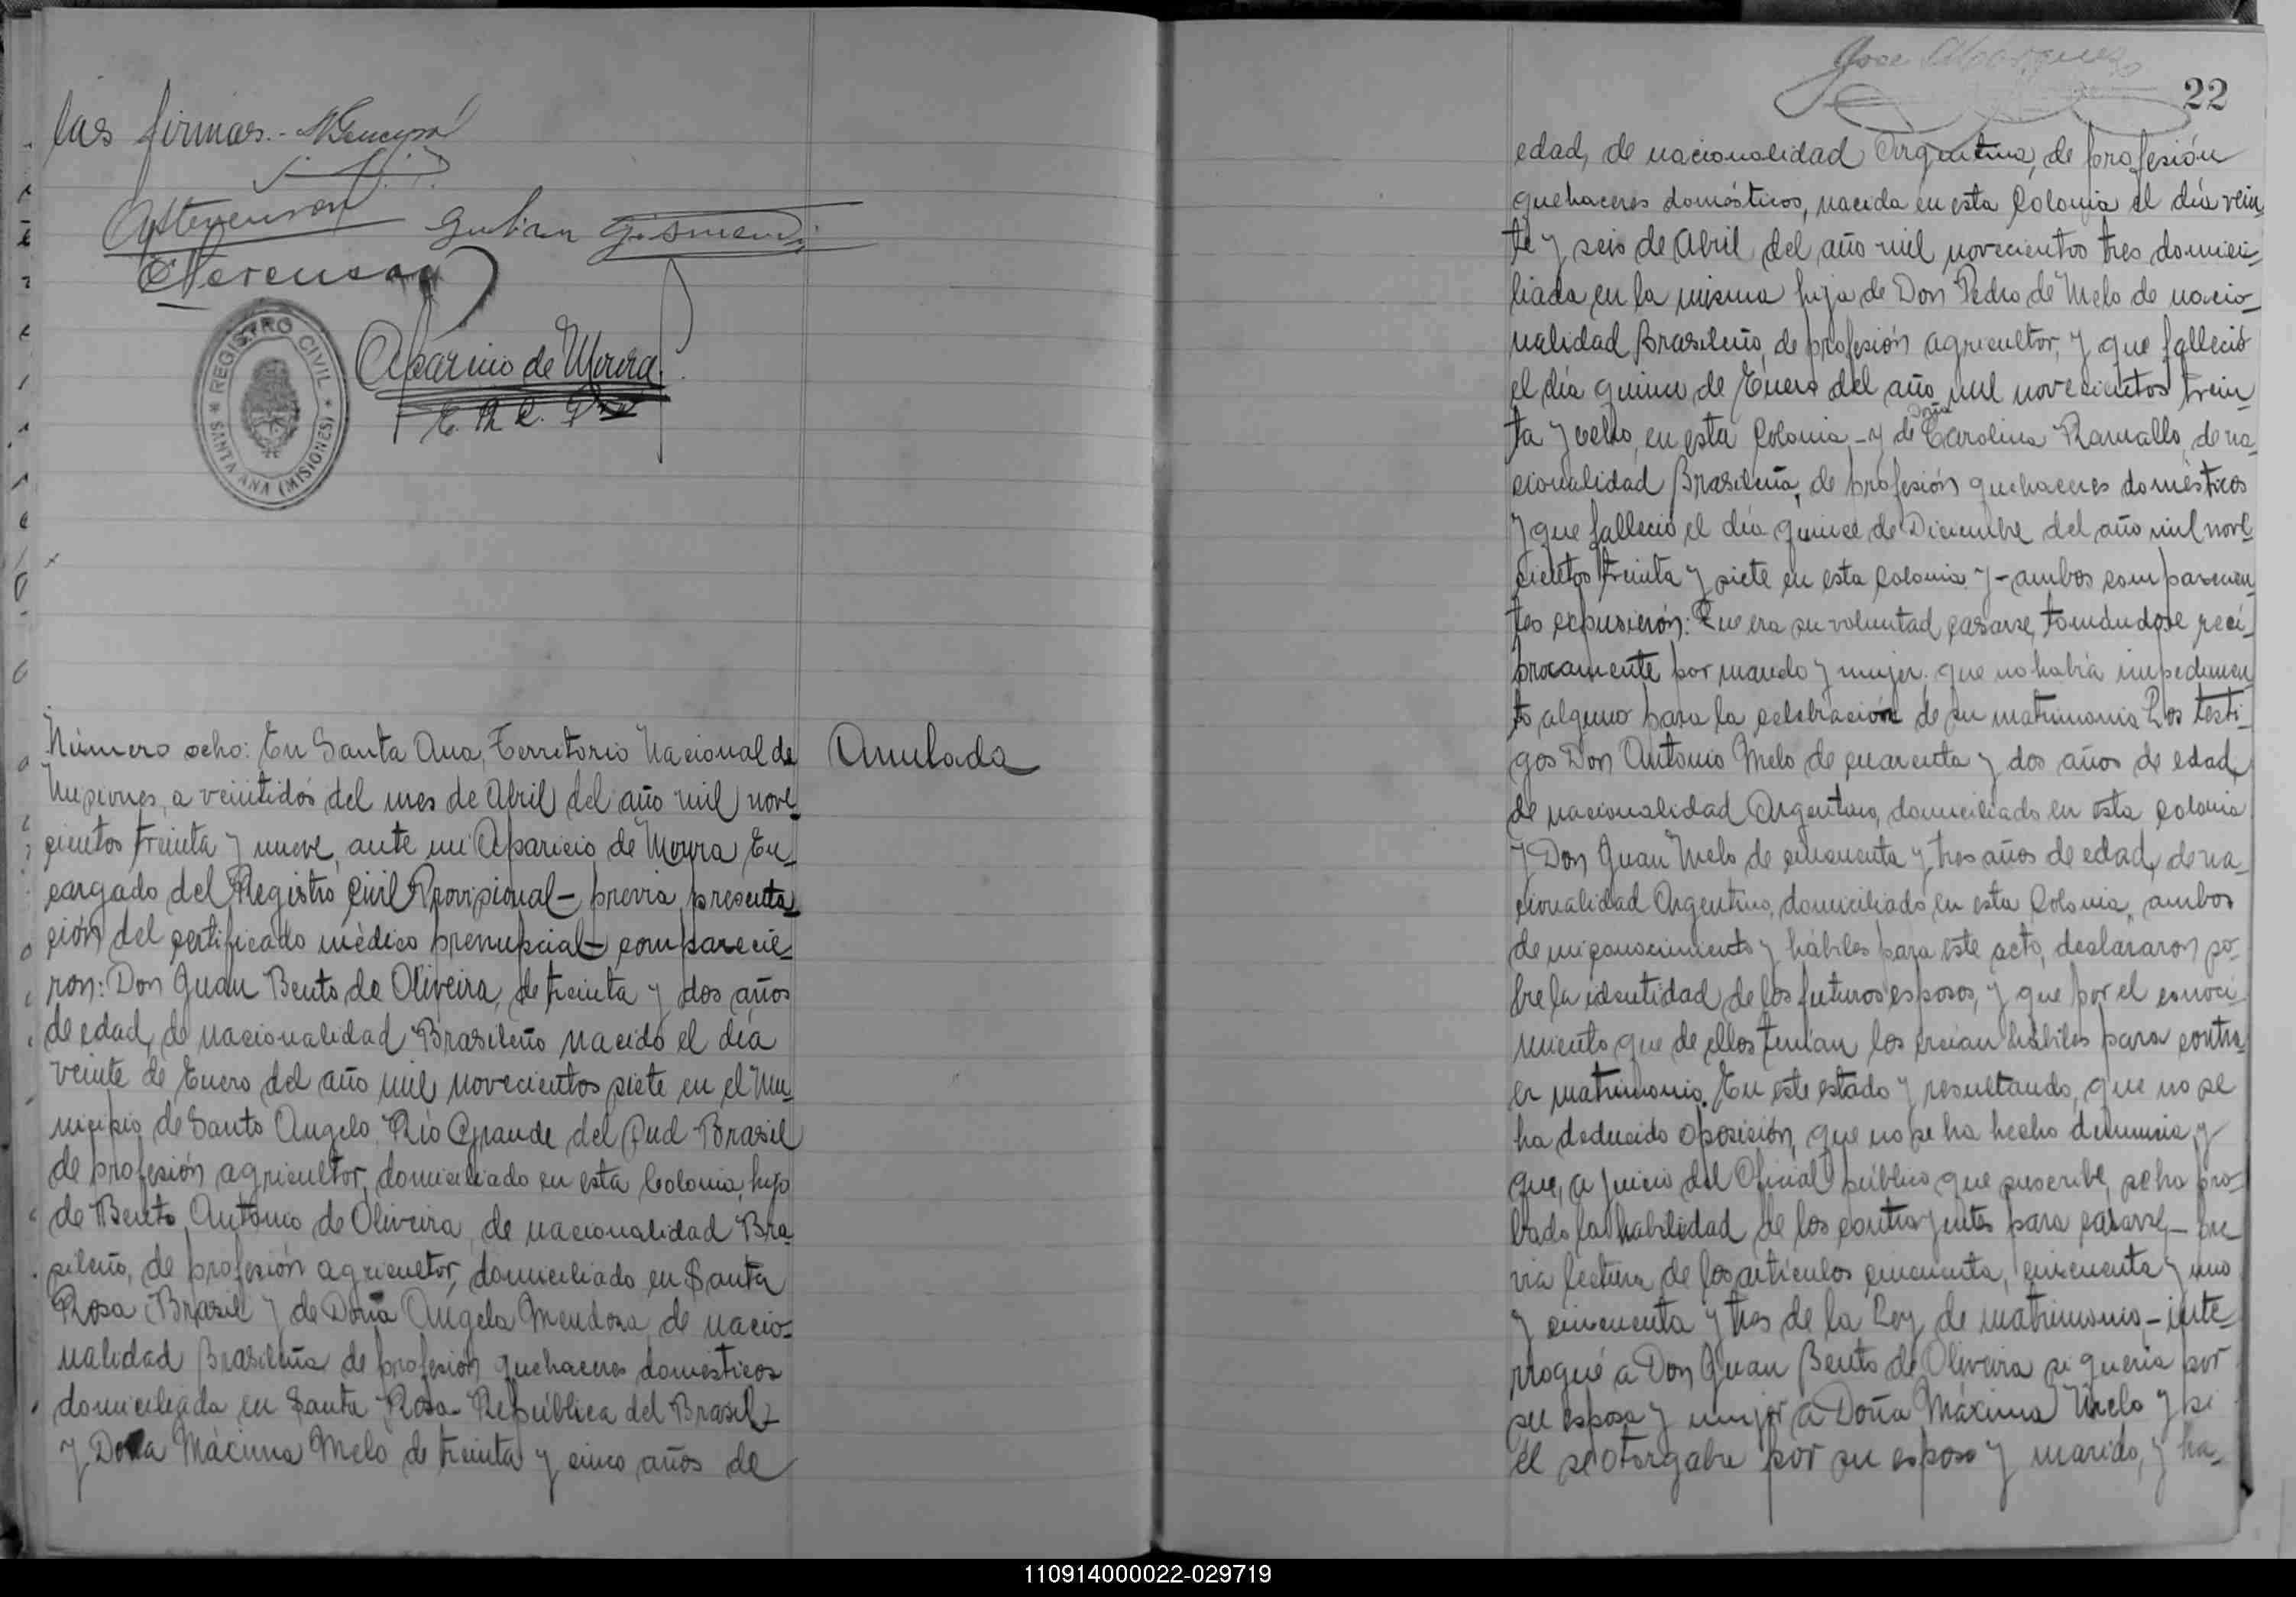 las firmas.-
Aparicio de Moura
E. R. C.
REGISTRO CIVIL
* SANTA ANA (MISIONES) *
Número ocho: En Santa Ana, Territorio Nacional de
Misiones, a veintidós del mes de Abril del año mil nove_
cientos treinta y nueve, ante mi Aparicio de Moura En_
cargado del Registro Civil Provisional - previa presenta_
ción del certificado médico prenupcial - comparecie_
ron: Don Juan Bento de Oliveira, de treinta y dos años
de edad, de nacionalidad Brasileño nacido el día
veinte de Enero del año mil novecientos siete en el Mu_
nicipio de Santo Angelo, Río Grande del Sud Brasil
de profesión agricultor, domiciliado en esta Colonia, hijo
de Bento Antonio de Oliveira, de nacionalidad Bra_
sileño, de profesión agricultor, domiciliado en Santa
Rosa (Brasil) y de Doña Angela Mendoza, de nacio_
nalidad Brasileña de profesión quehaceres domésticos
domiciliada en Santa Rosa República del Brasil -
y Doña Máxima Melo de treinta y cinco años de
Anulada
22
edad, de nacionalidad Argentina, de profesión
quehaceres domésticos, nacida en esta Colonia el día vein_
te y seis de Abril del año mil novecientos tres domici_
liada en la misma hija de Don Pedro de Melo de nacio_
nalidad Brasileño, de profesión agricultor, y que falleció
el día quince de Enero del año mil novecientos trein_
ta y ocho, en esta Colonia - y de Doña Carolina Ramallo, de na_
cionalidad Brasileña, de profesión quehaceres domésticos
y que falleció el día quince de Diciembre del año mil nove_
cientos treinta y siete en esta Colonia y - ambos comparecien_
tes expusieron: Que era su voluntad casarse, tomándose recí_
procamente por marido y mujer, que no había impedimen_
to alguno para la celebración de su matrimonio Los testi_
gos Don Antonio Melo de cuarenta y dos años de edad,
de nacionalidad Argentino, domiciliado en esta Colonia
y Don Juan Melo de cincuenta y tres años de edad, de na_
cionalidad Argentino, domiciliado en esta Colonia, ambos
de mi conocimiento y hábiles para este acto, declararon so_
bre la identidad de los futuros esposos, y que por el conoci_
miento que de ellos tenían los creían hábiles para contra_
er matrimonio. En este estado y resultando, que no se
ha deducido oposición, que no se ha hecho denuncia y
que, a juicio del Oficial público que suscribe, se ha pro_
bado la habilidad de los contrayentes para casarse, - pre_
via lectura de los artículos cincuenta, cincuenta y uno
y cincuenta y tres de la Ley de matrimonio, - inte_
rrogué a Don Juan Bento de Oliveira si quería por
su esposa y mujer a Doña Máxima Melo y si
él se otorgaba por su esposo y marido, y ha_
110914000022-029719